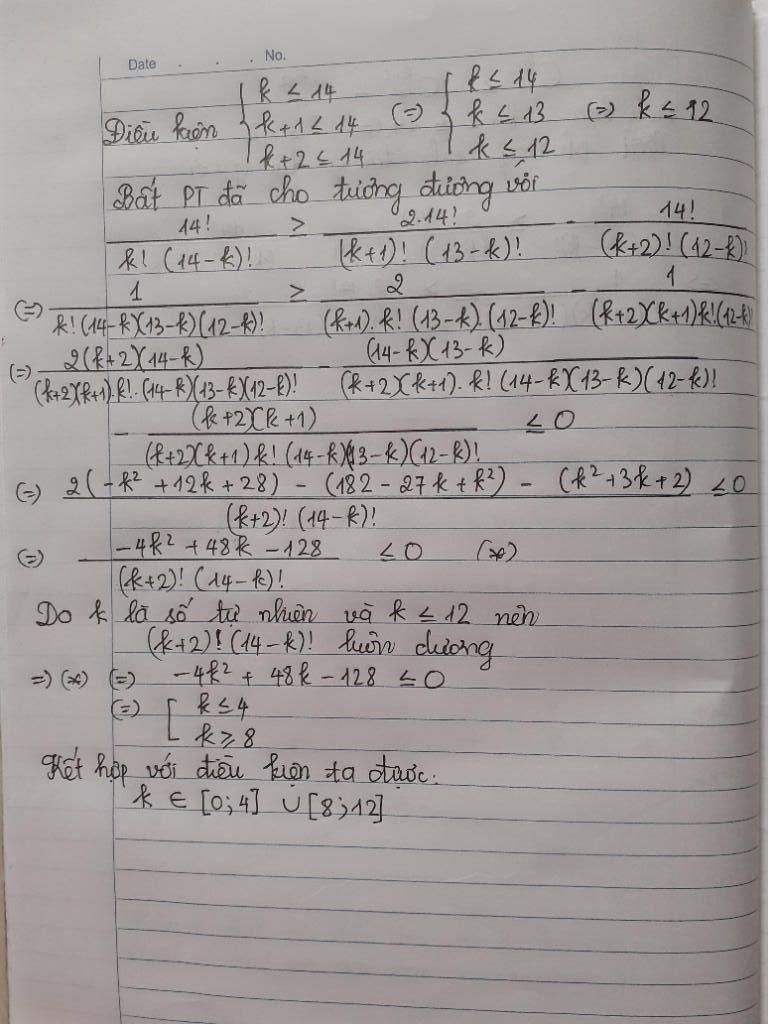 Date . . . No.
Điều kiện { k ≤ 14 (=) { k ≤ 14
k+1 ≤ 14 k ≤ 13 (=) k ≤ 12
k+2 ≤ 14 k ≤ 12
Bất PT đã cho tương đương với
14! / k! (14-k)! ≥ 2.14! / (k+1)! (13-k)! - 14! / (k+2)! (12-k)!
(=) 1 / k! (14-k)(13-k)(12-k)! ≥ 2 / (k+1). k! (13-k). (12-k)! - 1 / (k+2)(k+1)k!(12-k)
(=) 2(k+2)(14-k) / (k+2)(k+1).k!.(14-k)(13-k)(12-k)! - (14-k)(13-k) / (k+2)(k+1). k! (14-k)(13-k)(12-k)!
- (k+2)(k+1) / (k+2)(k+1) k! (14-k)(13-k)(12-k)! ≤ 0
(=) 2(-k² + 12k + 28) - (182 - 27k + k²) - (k² + 3k + 2) / (k+2)! (14-k)! ≤ 0
(=) -4k² + 48k - 128 / (k+2)! (14-k)! ≤ 0 (*)
Do k là số tự nhiên và k ≤ 12 nên
(k+2)! (14-k)! luôn dương
=) (*) (=) -4k² + 48k - 128 ≤ 0
(=) [ k ≤ 4
k ≥ 8
Kết hợp với điều kiện ta được:
k ∈ [0;4] ∪ [8;12]